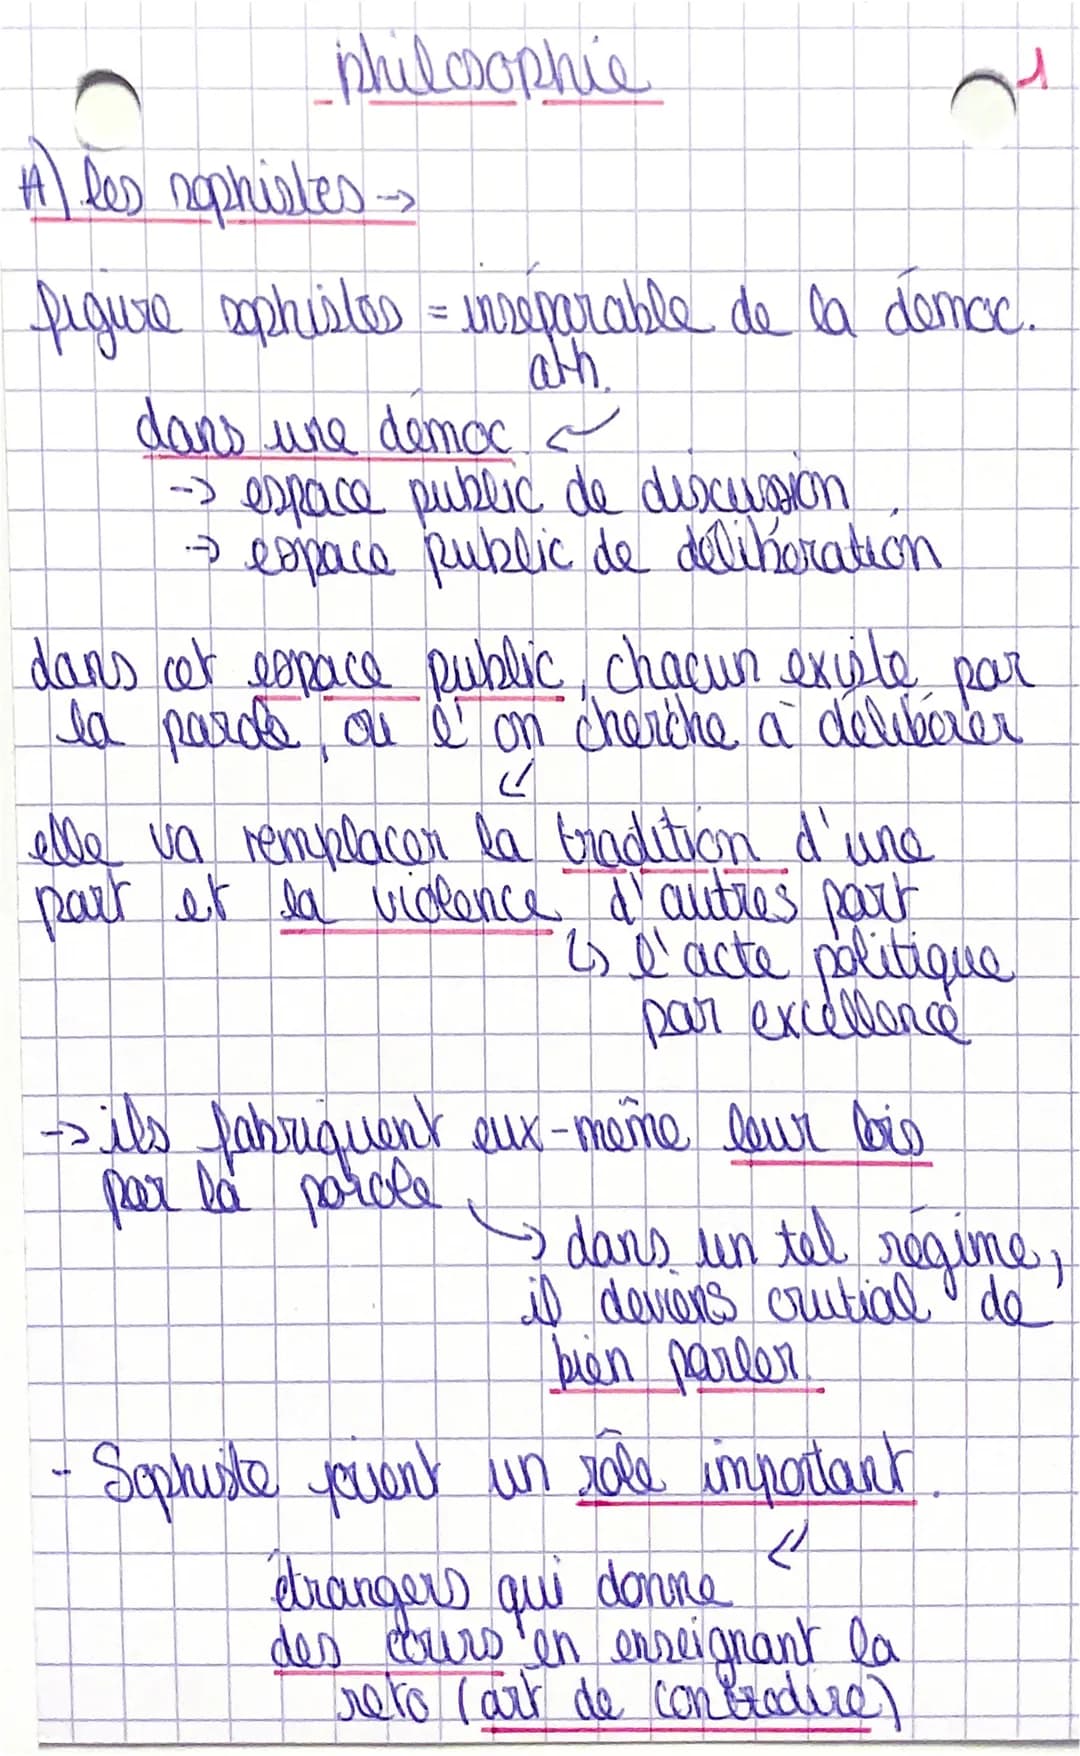 philosophie
1
A) les sophistes →
figure sophistes = inséparable de la démoc.
ath.
dans une démoc
→ espace public de discussion
→ espace public de délibération
dans cet espace public, chacun existe par
la parole, ou l'on cherche à délibérer
elle va remplacer la tradition d'une
part et la violence d'autres part
↳ l'acte politique
par excellence
→ ils fabriquent eux-même leur lois
par la parole
→ dans un tel régime,
il deviens crutial de
bien parler
- Sophiste jouent un rôle important.
étrangers qui donne
des cours en enseignant la
reto (art de contredire)